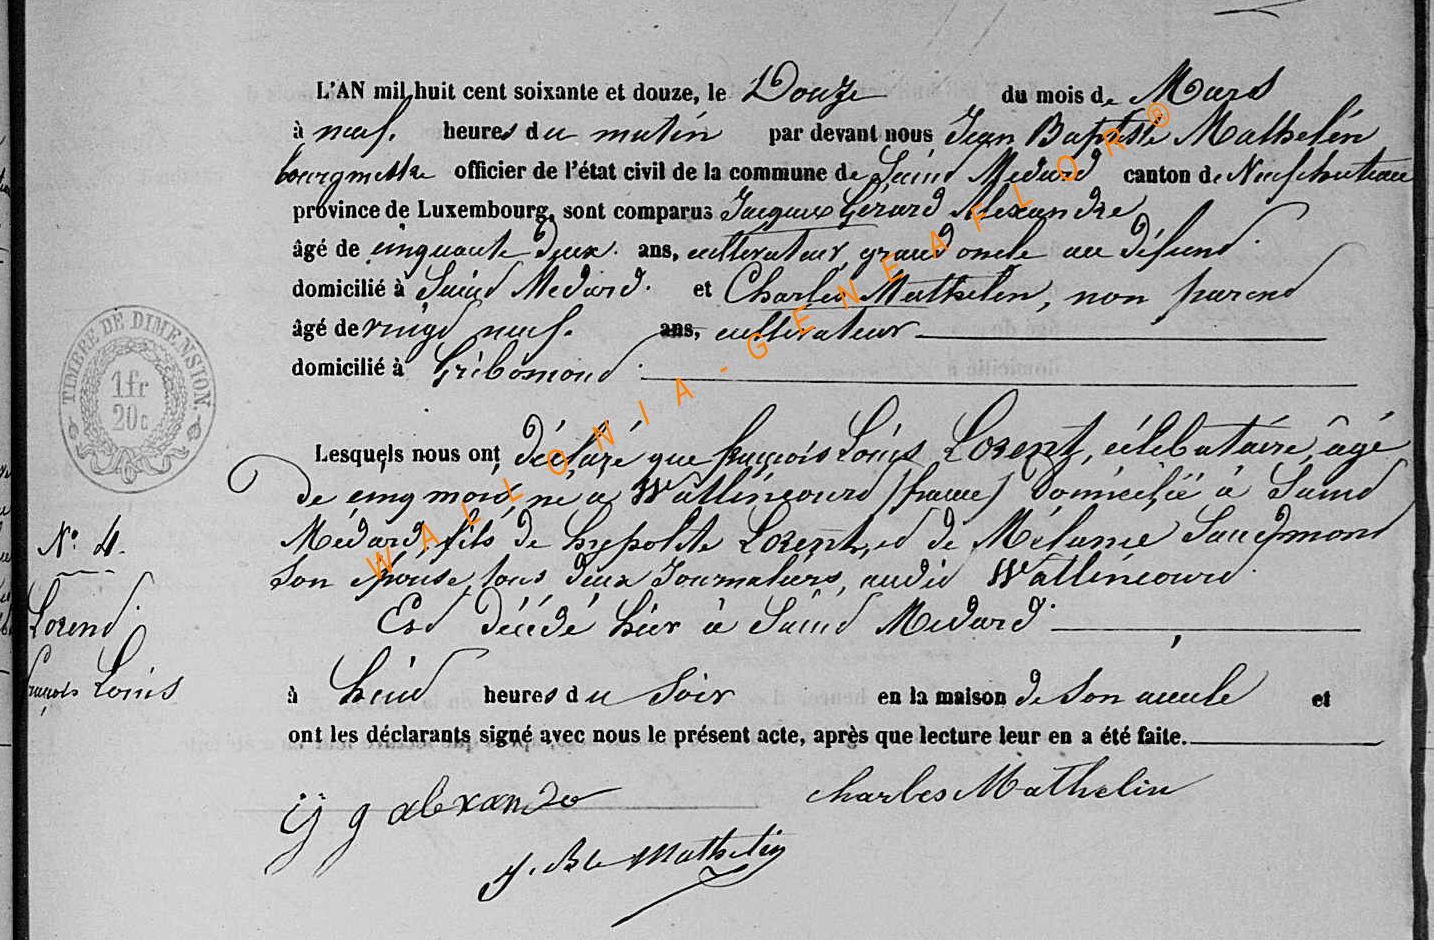 L'AN mil huit cent soixante et douze, le Douze du mois de Mars
à neuf heures du matin par devant nous Jean Baptiste Mathelin
bourgmestre officier de l'état civil de la commune de Saint Medard canton de Neufchateau
province de Luxembourg, sont comparus Jacques Gérard Alexandre
âgé de cinquante deux ans, cultivateur, grand oncle au défunt
domicilié à Saint Medard. et Charles Mathelin, non parent
âgé de vingt neuf. ans, cultivateur
domicilié à Gribomont
Lesquels nous ont déclaré que françois Louis Lorent, célibataire, âgé
de cinq mois, né à Wallincourt (france) domicilié à Saint
Médard, fils de hypolite Lorent, et de Mélanie
son épouse, tous deux Journaliers, audit Wallincourt.
Est décédé hier à Saint Medard
à huit heures du soir en la maison de son aieule et
ont les déclarants signé avec nous le présent acte, après que lecture leur en a été faite.
j g alexandre Charles Mathelin
J. Bte Mathelin
N° 4.
Lorent
françois Louis
TIMBRE DE DIMENSION.
1fr
20c
WALLONIA-GENEAFLOR®